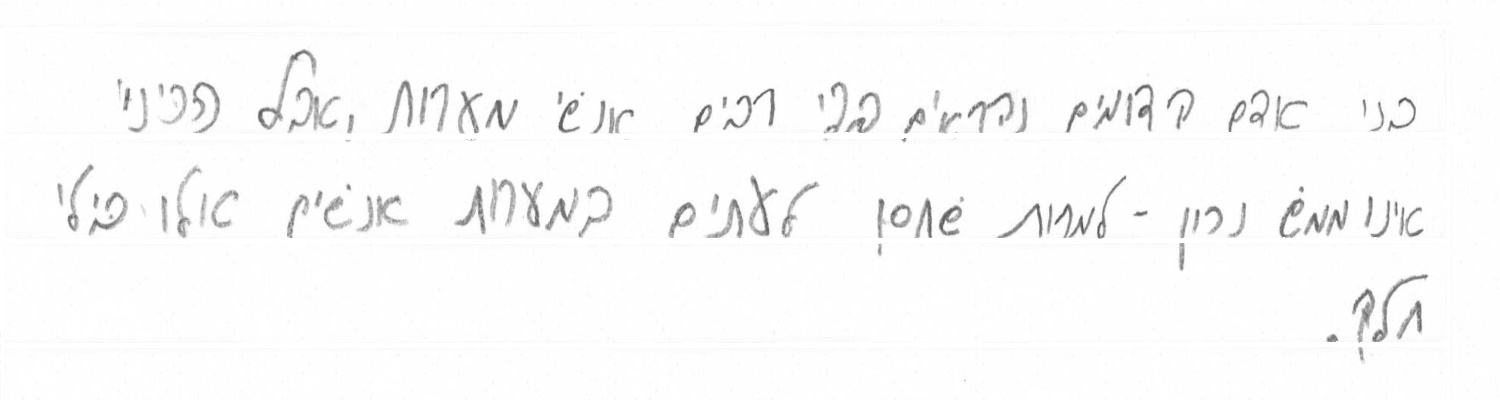 בני אדם קדומים נקראים בפי רבים אנשי מערות, אבל הכינוי
אינו ממש נכון - למרות שחסו לעתים במערות אנשים אולו בילו
חלק.